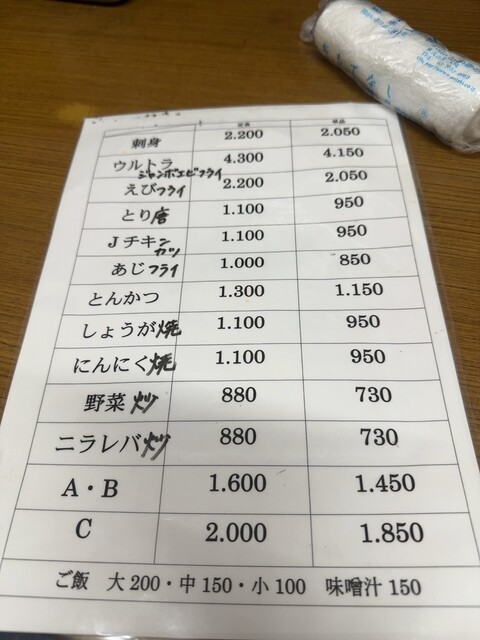 定食 単品
刺身 2.200 2.050
ウルトラ 4.300 4.150
ジャンボエビフライ
えびフライ 2.200 2.050
とり唐 1.100 950
Jチキンカツ 1.100 950
あじフライ 1.000 850
とんかつ 1.300 1.150
しょうが焼 1.100 950
にんにく焼 1.100 950
野菜炒 880 730
ニラレバ炒 880 730
A・B 1.600 1.450
C 2.000 1.850
ご飯 大200・中150・小100 味噌汁150